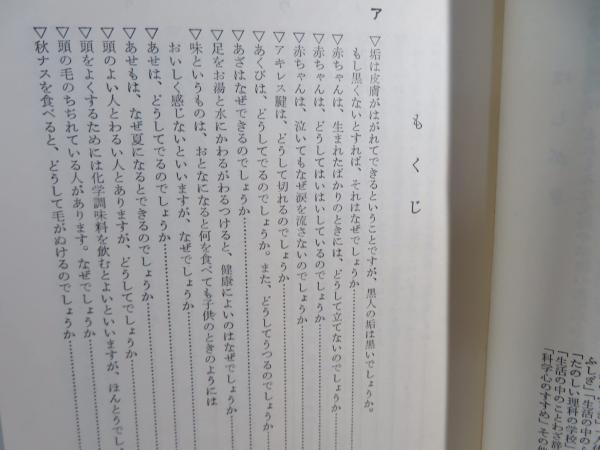 もくじ
ア
▽垢は皮膚がはがれてできるということですが、黒人の垢は黒いでしょうか。
もし黒くないとすれば、それはなぜでしょうか………
▽赤ちゃんは、生まれたばかりのときには、どうして立てないのでしょうか………
▽赤ちゃんは、どうしてはいはいしているのでしょうか………
▽赤ちゃんは、泣いてもなぜ涙を流さないのでしょうか………
▽アキレス腱は、どうして切れるのでしょうか………
▽あくびは、どうしてでるのでしょうか。また、どうしてうつるのでしょうか………
▽あざはなぜできるのでしょうか………
▽足をお湯と水にかわるがわるつけると、健康によいのはなぜでしょうか………
▽味というものは、おとなになると何を食べても子供のときのようには
おいしく感じないといいますが、なぜでしょうか………
▽あせは、どうしてでるのでしょうか………
▽あせもは、なぜ夏になるとできるのでしょうか………
▽頭のよい人とわるい人とありますが、どうしてでしょうか………
▽頭をよくするためには化学調味料を飲むとよいといいますが、ほんとうでし
▽頭の毛のちぢれている人があります。なぜでしょうか………
▽秋ナスを食べると、どうして毛がぬけるのでしょうか………
ふしぎ」「生活の中の
「たのしい理科の学校」
「生活の中のことわざ辞
「科学心のすすめ」その他